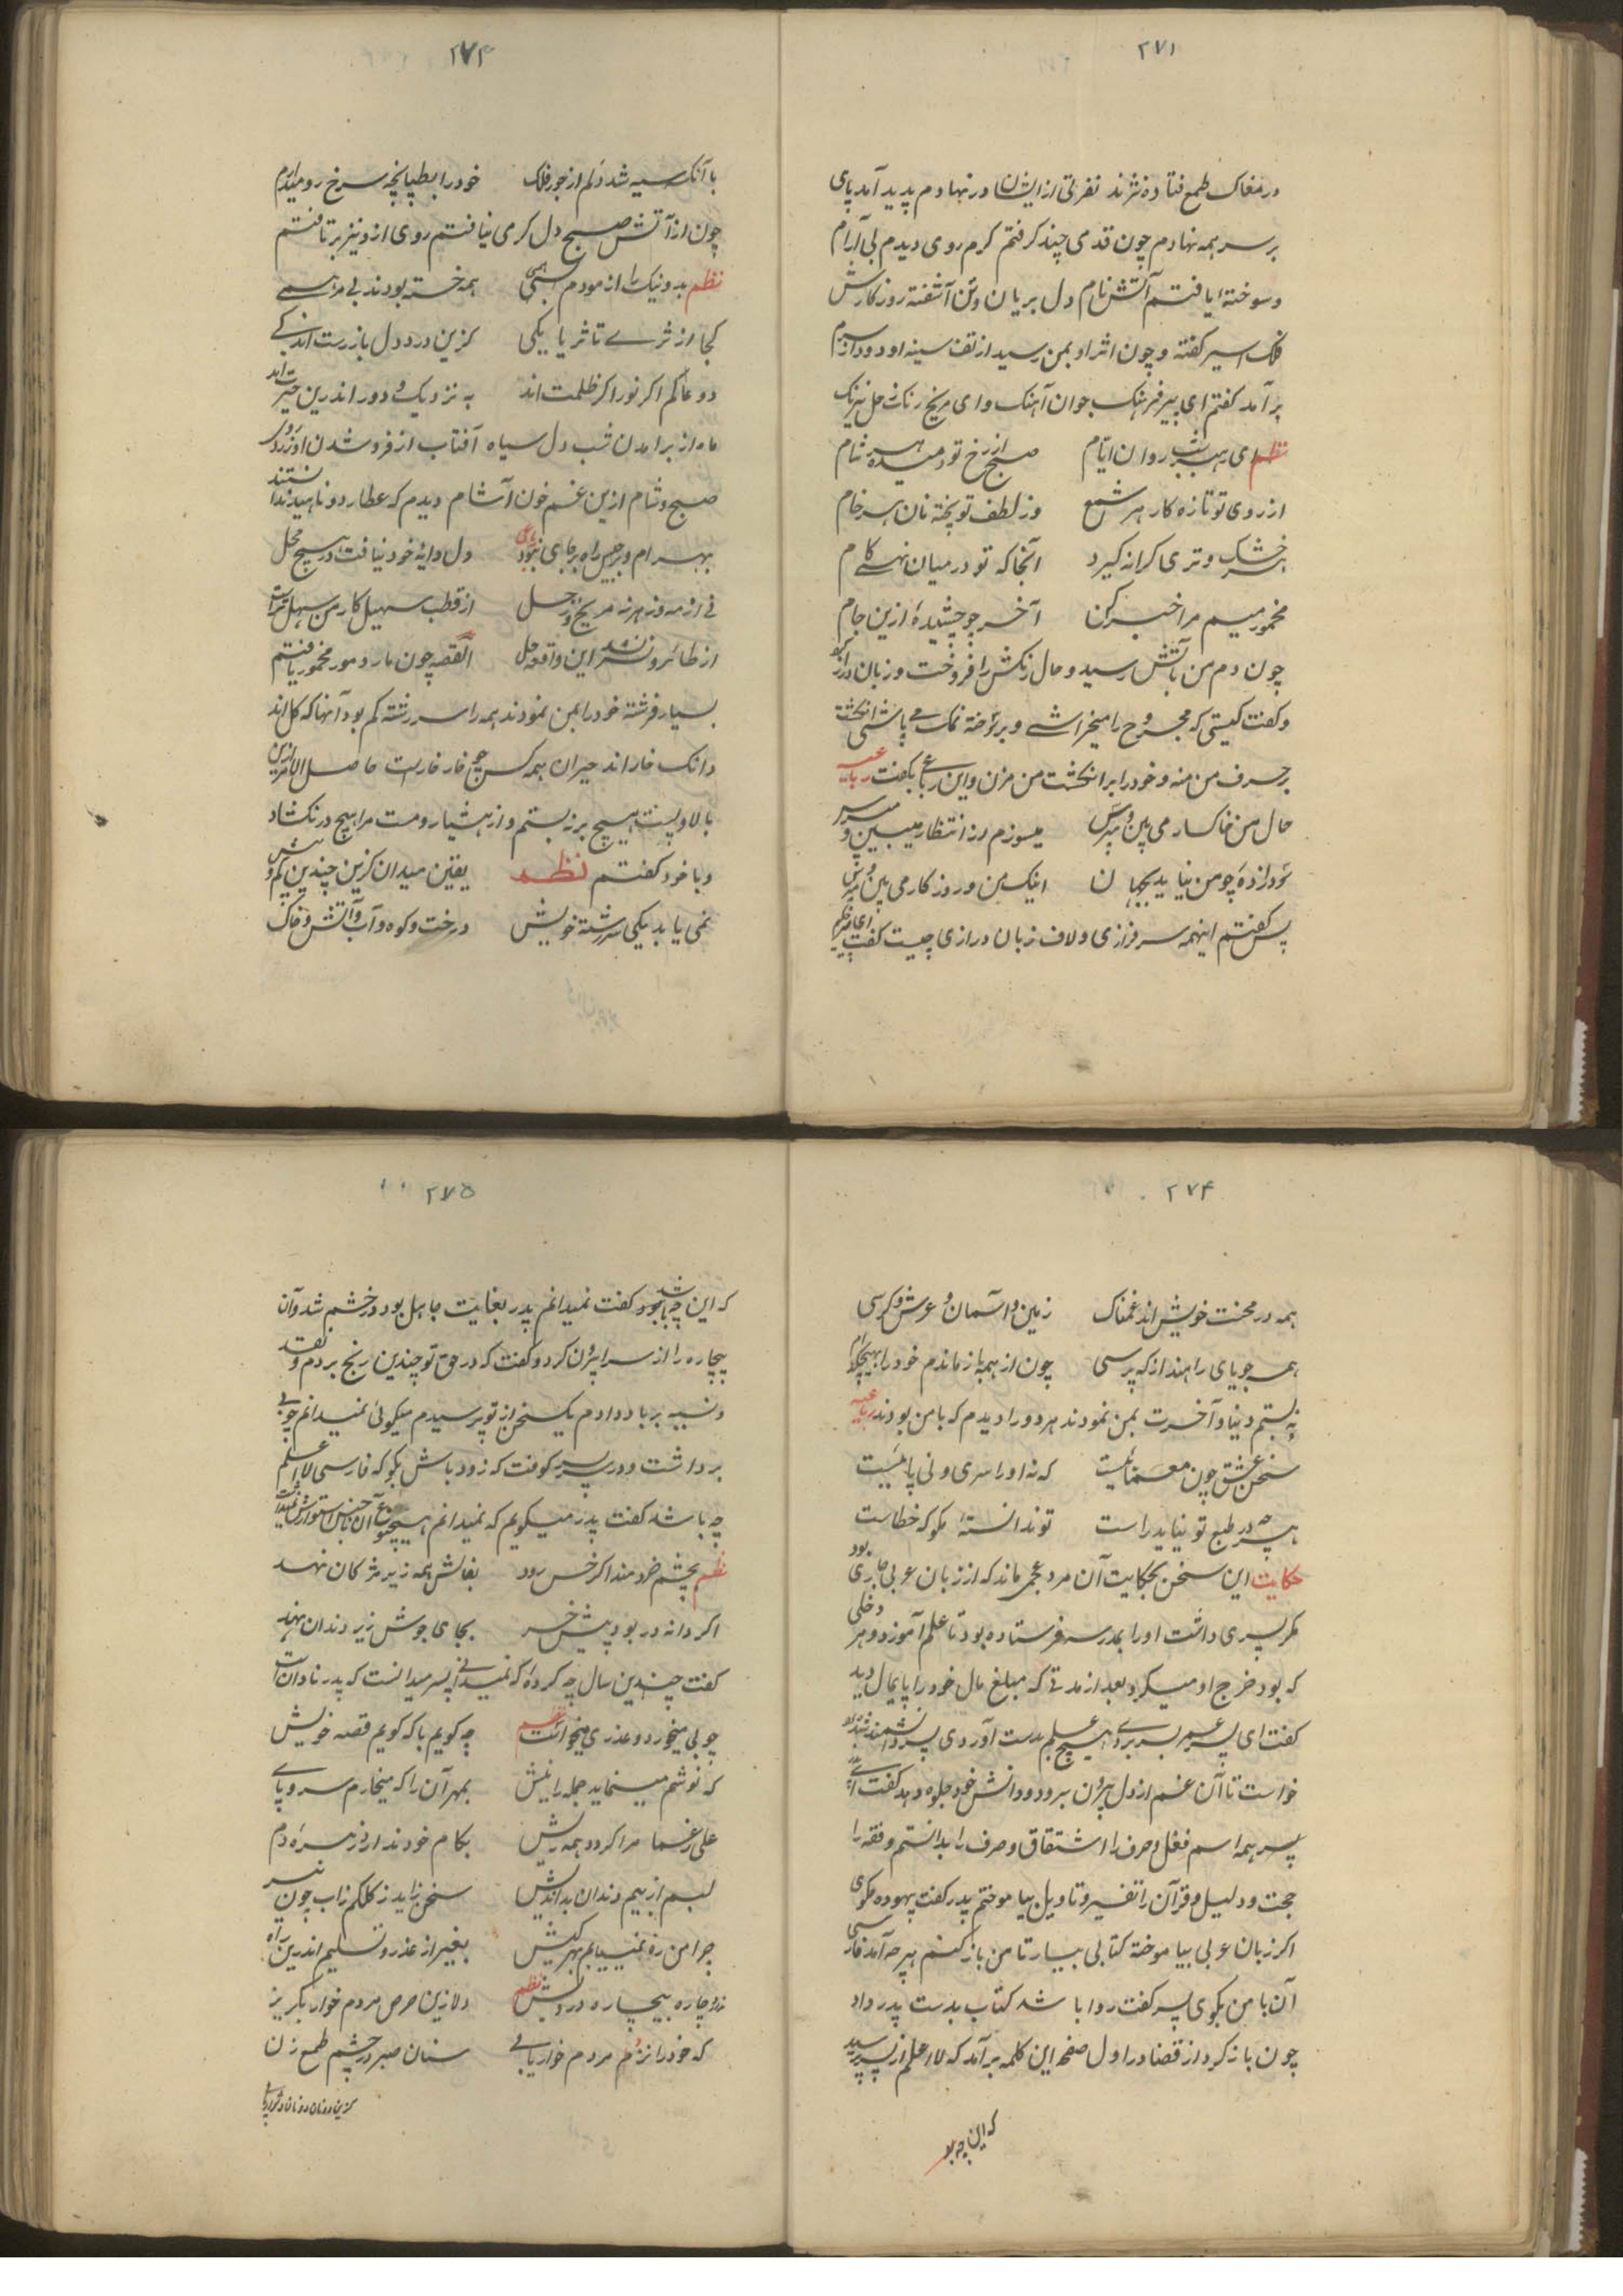 ۲۷۱
در مغاک طمع فتاده نژند نفرتی از ایشان در نهادم پدید آمد پای
بر سر همه نهادم چون قدمی چند گرفتم گرم روی دیدم بی آرام
و سوخته‌ٔ یافتم آتش نام دل بریان و تن آشفته روزگارش
فلک اسیر گفته و چون اثر او بمن رسید از تف سینه او دود از سرم
برآمد گفتم ای پیر فرهنگ جوان آهنگ و ای مریخ رنگ زحل نیرنگ
نظم ای رهبر شب روان ایام صبح از رخ تو دمیده هر شام
از روی تو تازه کار هر شمع وز لطف تو پخته نان هر خام
هر خشک و تری کرانه گیرد آنجا که تو در میان نهی کام
مخمور میم مرا خبر کن آخر چو چشیده‌ٔ ازین جام
چون دم من بآتش رسید و حال رنگش را فروخت و زبان دراز کرد
و گفت کیستی که مجروح را میخراشی و بر سوخته نمک می پاشی انگشت
بر حرف من منه و خود را بر انگشت من مزن و این رباعی بگفت رباعیه
حال من خاکسار می بین و مپرس میسوزم در انتظار میبین و مپرس
دود از ده چو من نیاید بجهان اینک من و روزگار می بین و مپرس
پس گفتم اینهمه سرفرازی و لاف زبان درازی چیست گفت
۲۷۳
با آنک سیه شد دلم از جور فلک خود را بطپانچه سرخ رو میدارم
چون از آتش صبح دل گرمی نیافتم روی ازو نیز برتافتم
نظم بد و نیک را آزمودم بسی همه خسته بودند بی مرهمی
کجا از ثری تا ثریا یکی کزین درد دل باز رست اندکی
دو عالم اگر نور اگر ظلمت اند به نزدیک و دور اندرین حیرت اند
ماه از برآمدن شب دل سیاه آفتاب از فرو شدن او زرد روی
صبح و شام ازین غم خون آشام دیدم که عطارد و ناهید ندانستند
بهرام و برجیس راه بجای نبود دل دایه خود نیافت در هیچ محل
نی از مه و زهره نه مریخ و زحل از قطب سهیل کار من سهل نگشت
از طائر و نسر نشد این واقعه حل القصه چون مار و مور مخمور یافتم
بسیار فرشته خود را بمن نمودند همه را سر رشته گم بود آنها که کل اند
و آنک خار اند حیران همه کس چو خار خارست حاصل الامر ازین
بالا و پست هیچ بر نبستم و از هشیار و مست مرا هیچ در نگشاد
و با خود گفتم نظم یقین میدان کزین چندین کم و بیش
نمی یابد یکی سر رشته خویش درخت و کوه و آب و آتش و خاک
۲۷۴
همه در محنت خویش اند غمناک زمین و آسمان و عرش و کرسی
همه جویای راهند از که پرسی چون از همه باز ماندم خود را بهیچکدام
نه بستم دنیا و آخرت بمن نمودند هر دو را دیدم که با من بودند رباعیه
سخن عشق چون معمائیست که نه او را سری و نی پائیست
هر چه در طبع تو نیاید راست تو ندانسته‌ٔ مگو که خطاست
حکایت این سخن بحکایت آن مرد عجمی ماند که از زبان عربی عاری بود
مگر پسری داشت او را بمدرسه فرستاده بود تا علم آموزد و هر دخلی
که بود خرج او میکرد بعد از مدتی که مبلغ مال خود را پایمال دید
گفت ای پسر عمر بسر بردی هیچ علم بدست آوردی پسر دانشمند شده بود
خواست تا آن غم از دل پدر بیرون برد و دانش خود جلوه دهد گفت ای
پسر همه اسم فعل و حرف را اشتقاق و صرف را بدانستم و فقه را
حجت و دلیل و قرآن را تفسیر و تاویل بیاموختم پدر گفت بیهوده مگوی
اگر زبان عربی بیاموخته کتابی بیار تا من باز کنم هر چه آمد فارسی
آن با من بگوی پسر گفت روا باشد کتاب بدست پدر داد
چون باز کرد از قضا در اول صفحه این کلمه برآمد که لا اعلم از پسر پرسید
که این چه بود
۲۷۵
که این چه باشد گفت نمیدانم پدر بغایت جاهل بود در خشم شد و آن
بیچاره را از سرا بیرون کرد و گفت که در حق تو چندین رنج بردم و نقد
و نسیه بر باد دادم یک سخن از تو پرسیدم میگوئی نمیدانم چوبی
برداشت و در پسر کوفت که زود باش بگو که فارسی لا اعلم
چه باشد گفت پدر میگویم که نمیدانم هیچ نوع آن جنس استوارش نمیداشت
نظم بچشم خردمند اگر خس رود بغالش همه زیر مژگان نهد
اگر دانه در بود پیش خر بجای جوش زیر دندان نهد
گفت چندین سال چه کرده که نمیدانی پسر میدانست که پدر نادانست
چوبی میخورد و عذری میخواست نظم چه گویم با که گویم قصه خویش
که نوشم مینماید جمله را نیش بمهر آن را که میخارم سر و پای
علی رغما مرا گردد همه ریش بکام خود ندارد از زهره دم
لبم از بیم دندان بداندیش سخن زاید ز کلکم زاب چون تیر
چرا من ره نمییابم بهر کیش بغیر از عذر و تسلیم اندرین راه
ندارد چاره بیچاره درویش نظم دلا زین حرص مردم خوار بگریز
که خود را نزدم مردم خوار یابی سنان صبر در چشم طمع زن